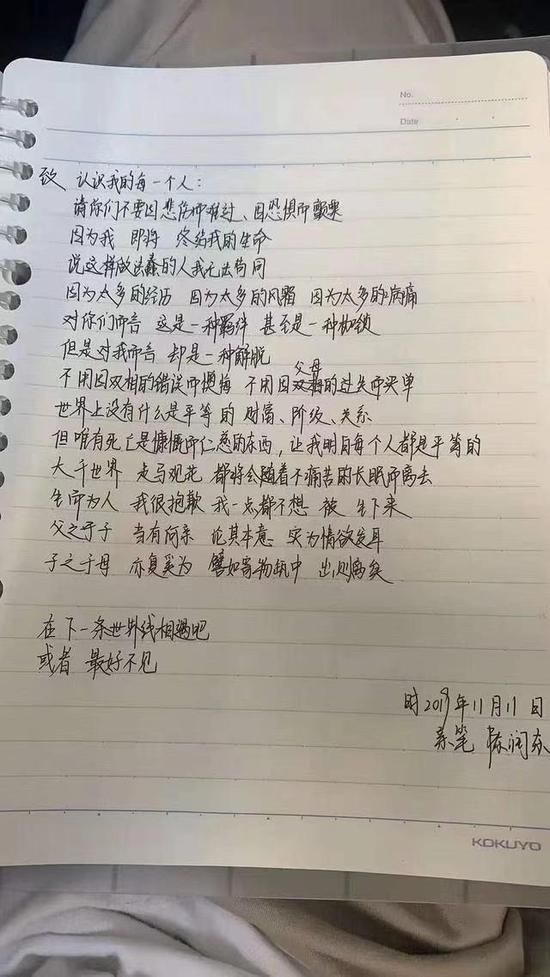 No.
Date
致 认识我的每一个人：
请你们不要因悲伤而难过、因恐惧而颤栗
因为我 即将 终结我的生命
说这样做法蠢的人我无法苟同
因为太多的经历 因为太多的风霜 因为太多的病痛
对你们而言 这是一种羁绊 甚至是一种枷锁
但是对我而言 却是一种解脱
不用因双相的错误而懊悔 不用因父母的过失而买单
世界上没有什么是平等的 财富、阶级、关系
但唯有死亡是慷慨而仁慈的东西，让我明白每个人都是平等的
大千世界 走马观花 都将会随着不痛苦的长眠而离去
生而为人 我很抱歉 我一点都不想 被 生下来
父之于子 当有何亲 论其本意 实为情欲发耳
子之于母 亦复奚为 譬如寄物瓶中 出则离矣
在下一条世界线相遇吧
或者 最好不见
时2019年11月11日
亲笔 陈润东
KOKUYO